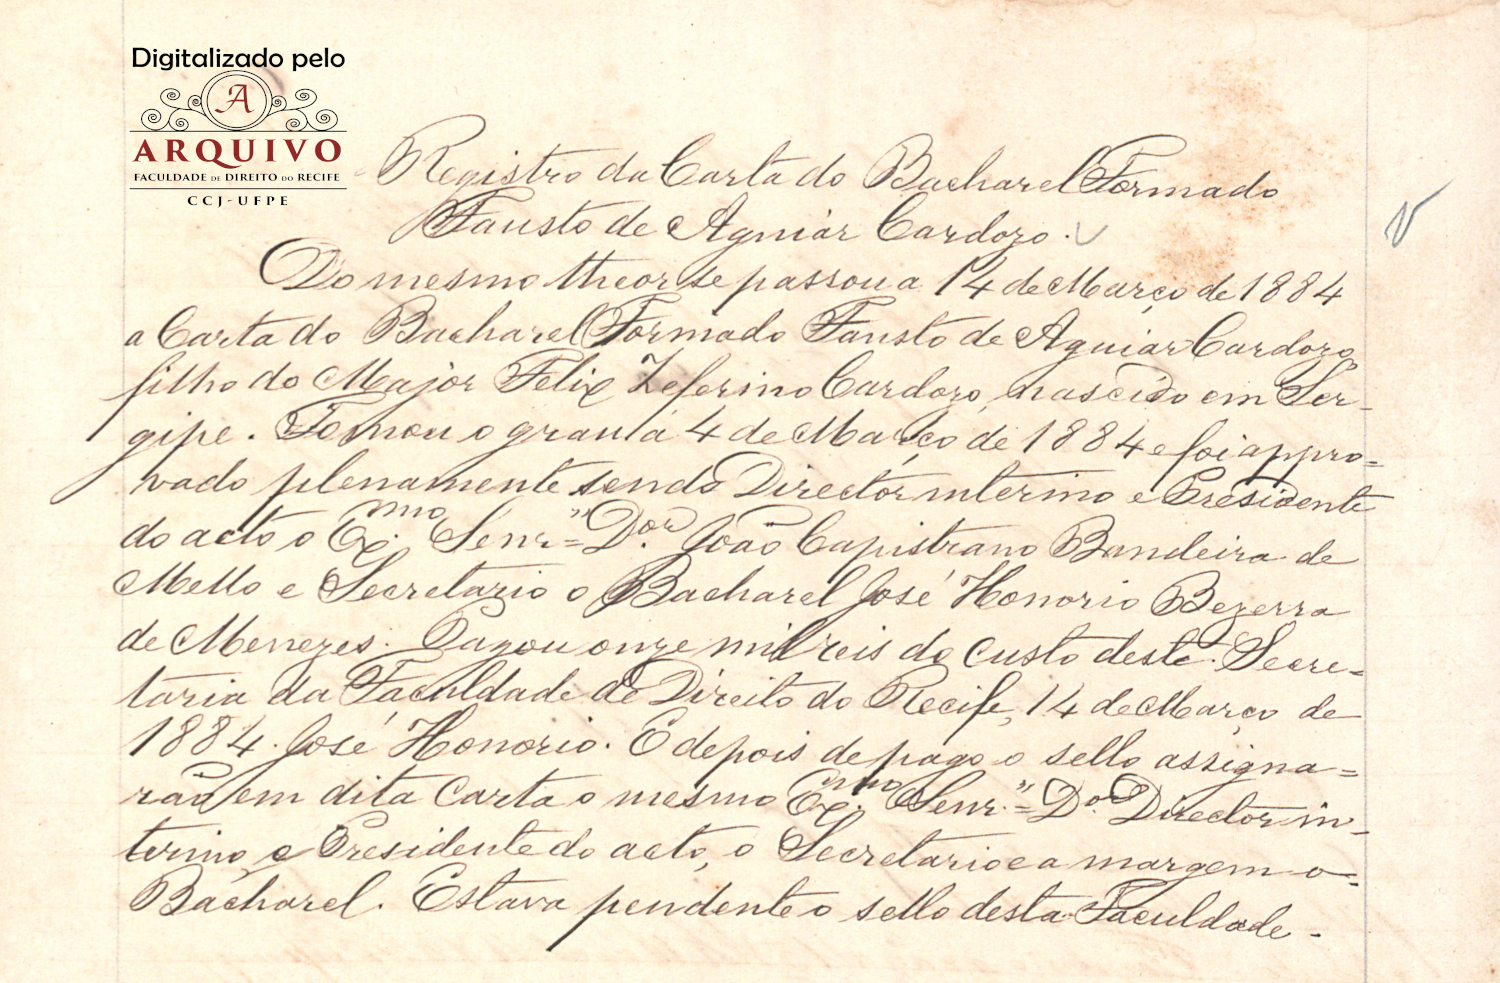 Digitalizado pelo
A
ARQUIVO
FACULDADE DE DIREITO DO RECIFE
CCJ-UFPE
Registro da Carta do Bacharel Formado
Fausto de Aguiar Cardozo.
Do mesmo theor se passou a 14 de Março de 1884
a Carta do Bacharel Formado Fausto de Aguiar Cardozo,
filho do Major Felix Zeferino Cardozo, nascido em Ser-
gipe. Tomou o grau a 4 de Março de 1884 e foi appro=
vado plenamente sendo Director interino e Presidente
do acto o Ex.mo Senr.= D.or João Capistrano Bandeira de
Mello e Secretario o Bacharel José Honorio Bezerra
de Menezes. Pagou onze mil reis do custo deste. Secre=
taria da Faculdade de Direito do Recife, 14 de Março de
1884. José Honorio. E depois de pago o sello assigna=
rão em dita Carta o mesmo Ex.mo Senr.= D.or Director in-
terino, e Presidente do acto, o Secretario e a margem o=
Bacharel. Estava pendente o sello desta Faculdade.